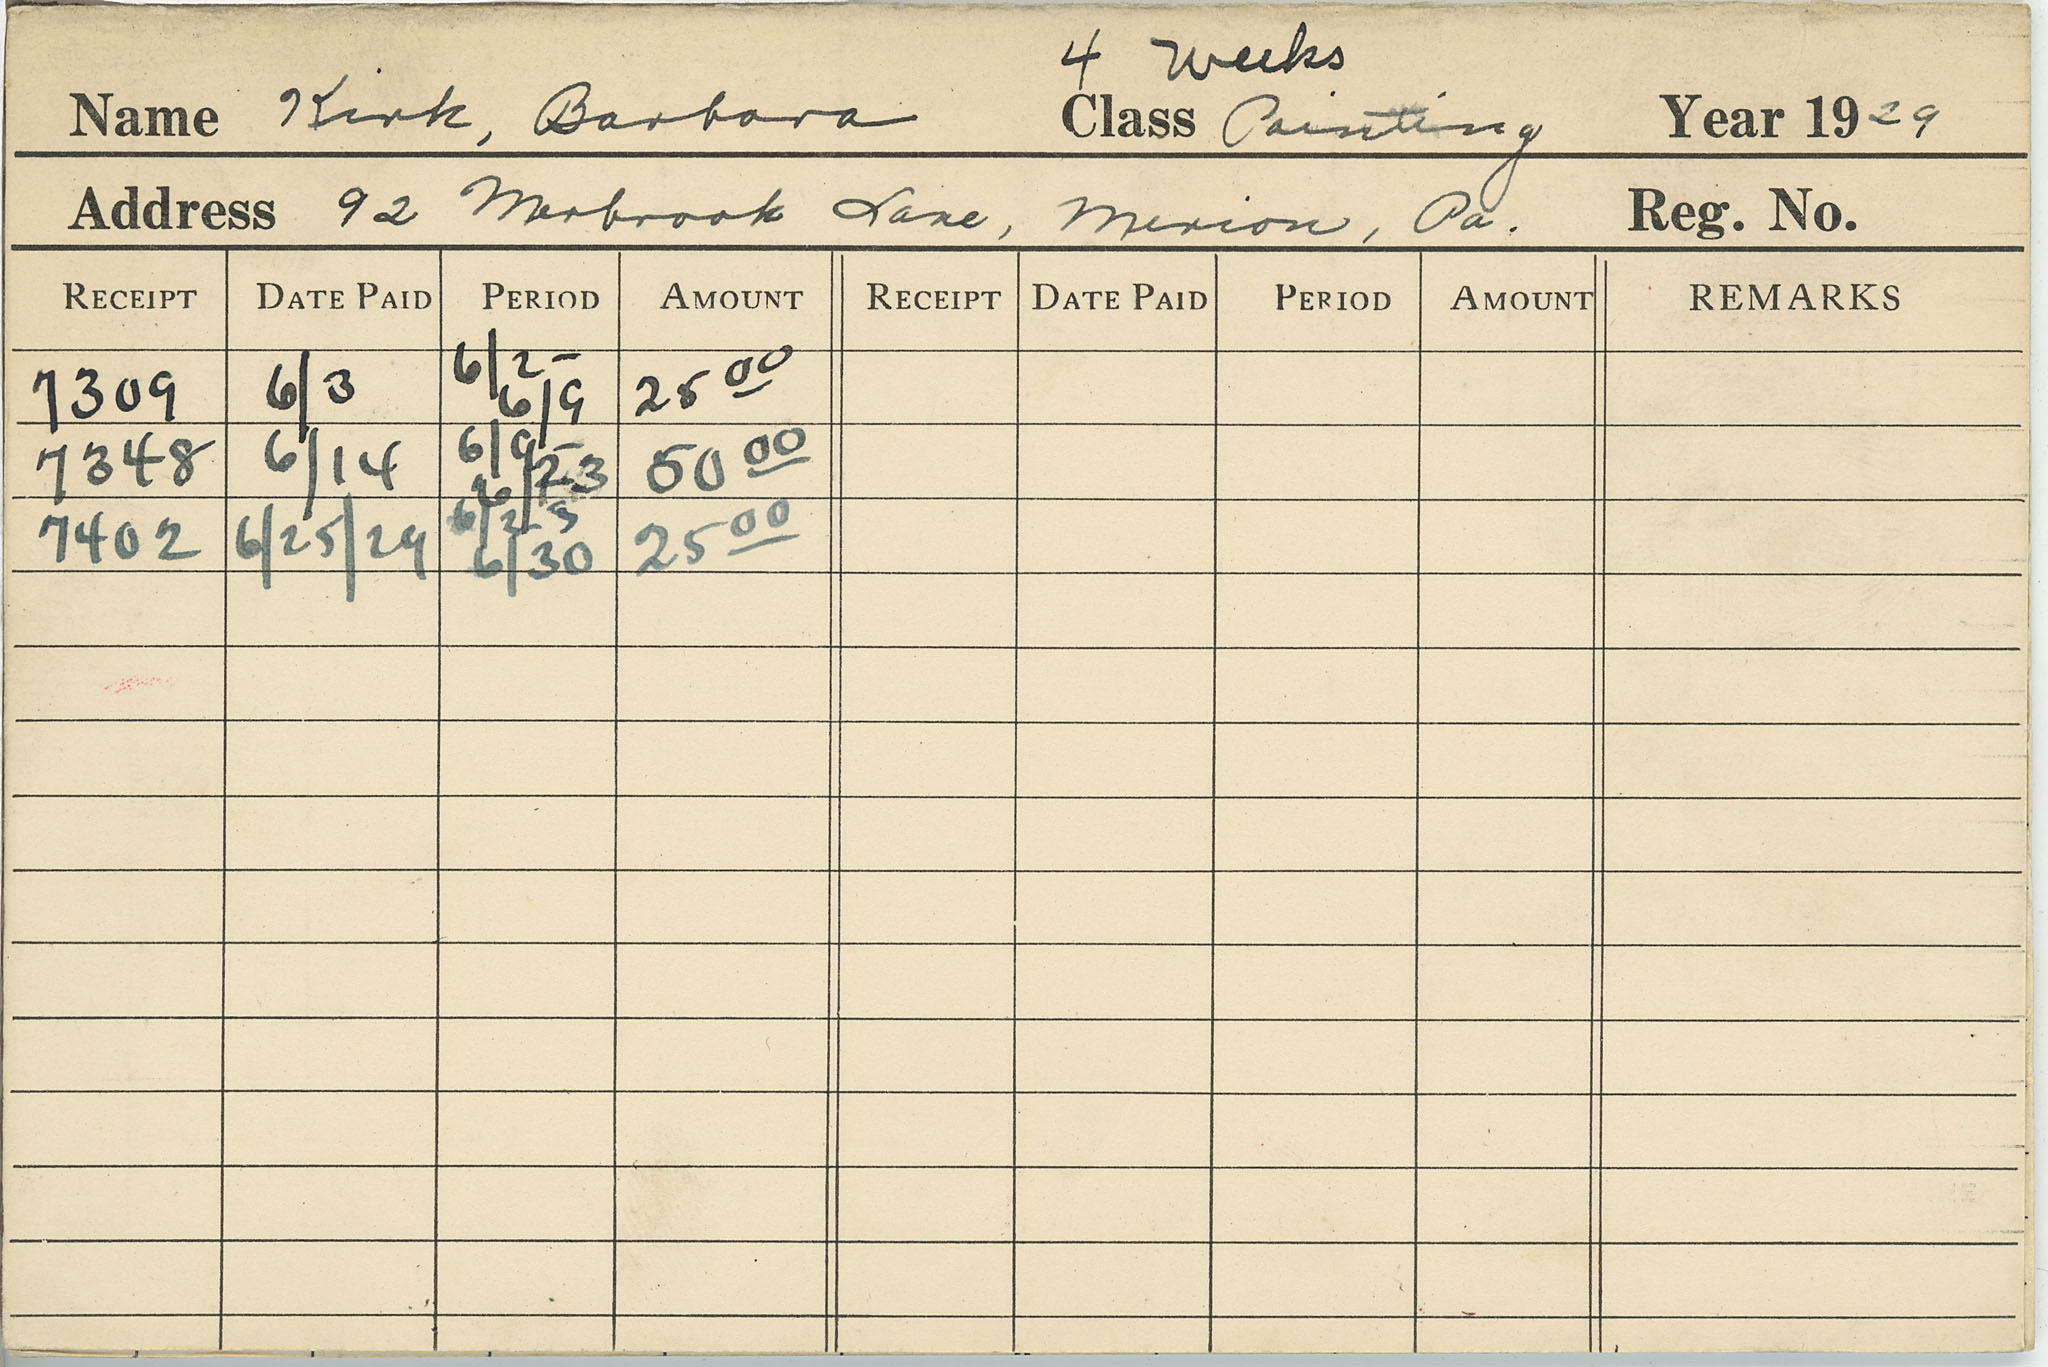 4 Weeks
Name Kirk, Barbara Class Painting Year 1929
Address 92 Merbrook Lane, Merion, Pa. Reg. No.
RECEIPT DATE PAID PERIOD AMOUNT RECEIPT DATE PAID PERIOD AMOUNT REMARKS
7309 6/3 6/2- 6/9 25 00
7348 6/14 6/9- 6/23 50 00
7402 6/25/29 6/23 6/30 25 00